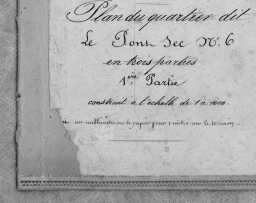 Plan du quartier dit
Le Pont Sec N.º 6
en trois parties
1ère Partie
construit à l'échelle de 1 à 1000
un millimètre sur le papier pour 1 mètre sur le terrain